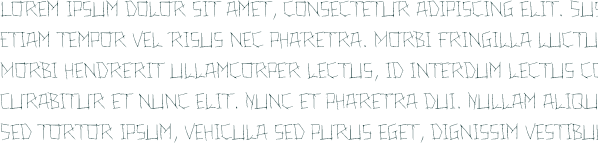 LOREM IPSUM DOLOR SIT AMET, CONSECTETUR ADIPISCING ELIT. SUS
ETIAM TEMPOR VEL RISUS NEC PHARETRA. MORBI FRINGILLA LUCTU
MORBI HENDRERIT ULLAMCORPER LECTUS, ID INTERDUM LECTUS CO
CURABITUR ET NUNC ELIT. NUNC ET PHARETRA DUI. NULLAM ALIQU
SED TORTOR IPSUM, VEHICULA SED PURUS EGET, DIGNISSIM VESTIBUL